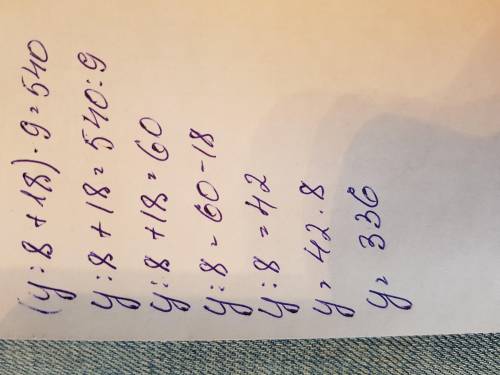 (y:8+18)·9=540
y:8+18=540:9
y:8+18=60
y:8=60-18
y:8=42
y=42·8
y=336